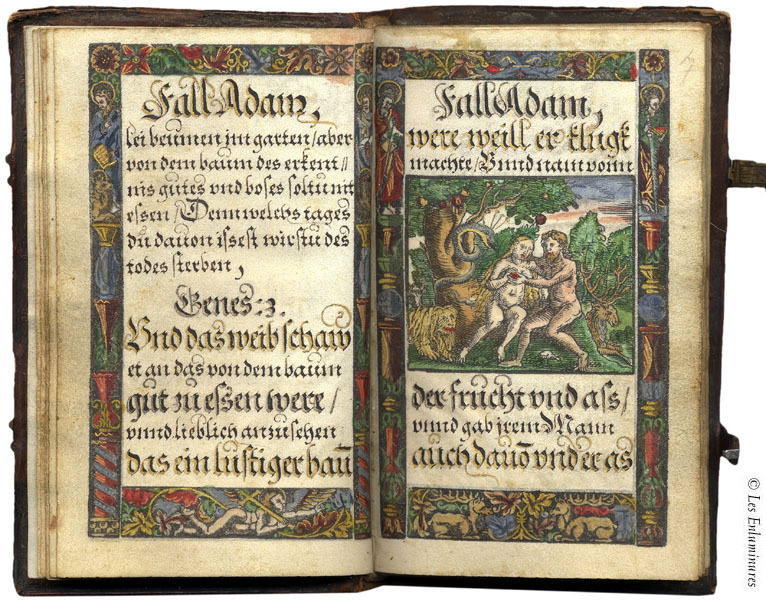 Fall Adam,
lei beumen im garten / aber
von dem baum des erkent//
nis gutes vnd boses soltu nit
essen / Denn welchs tages
du dauon issest wirstu des
todes sterben,
Genes: 3.
Vnd das weib schaw
et an das von dem baum
gut zu essen were /
vnnd lieblich anzusehen
das ein lustiger baū
Fall Adam,
were weill er klugk
machte / Vnnd nam vonn
der frucht vnd ass /
vnnd gab jrem Mann
auch dauō vnd er as
© Les Enluminures